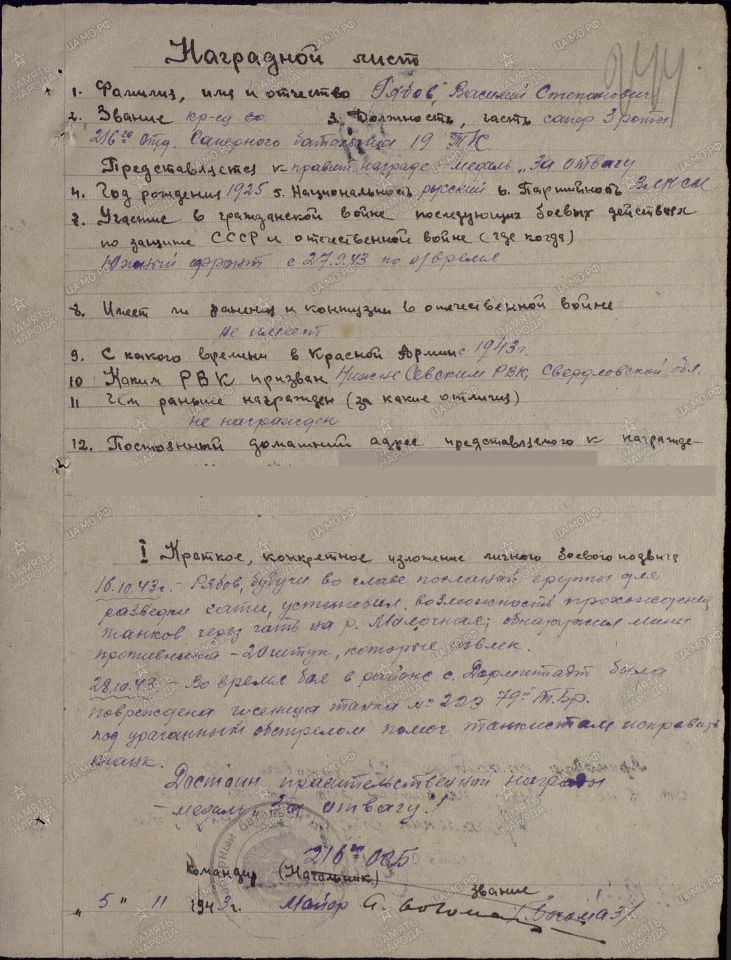 Наградной лист
244
1. Фамилия, имя и отчество Рябов, Василий Степанович
2. Звание кр-ец 3. Должность, часть сапер 3 роты
216го отд. Саперного батальона 19 ТК.
Представляется к правит. награде медаль „За отвагу
4. Год рождения 1925 5. Национальность русский 6. Партийность ВЛКСМ
7. Участие в гражданской войне последующих боевых действиях
по защите СССР и отечественной войне (где когда)
Южный фронт с 27.9.43 по н/время
8. Имеет ли ранения и контузии в отечественной войне
не имеет
9. С какого времени в Красной Армии с 1943г.
10 Каким РВК призван РВК, Свердловской обл.
11 Чем раньше награжден (за какие отличия)
не награжден
12. Постоянный домашний адрес представляемого к награжде-
I Краткое, конкретное изложение личного боевого подвига
16.10.43г. - Рябов, будучи во главе посланой группы для
разведки гати, установил возможность прохождения
танков через гать на р. Молочная; обнаружил мины
противника - 20 штук, которые извлек.
28.10.43 - Во время боя в районе с. Дармштадт была
повреждена гусеница танка № 223 79й Т.Бр.
под ураганным обстрелом помог танкистам исправить
танк.
Достоин правительственной награды
- медаль „За отвагу"!
216го ОСБ
Командир (Начальник)
звание
„5" 11 1943г. Майор /Богомаз/